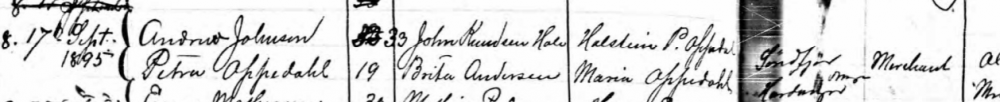 8. 17 Sept. Andrew Johnson 33 John Knudsen Hole Halstein P. Oppedal
1895 Petra Oppedahl 19 Brita Andersen Maria Oppedahl Søndfjør Merchant